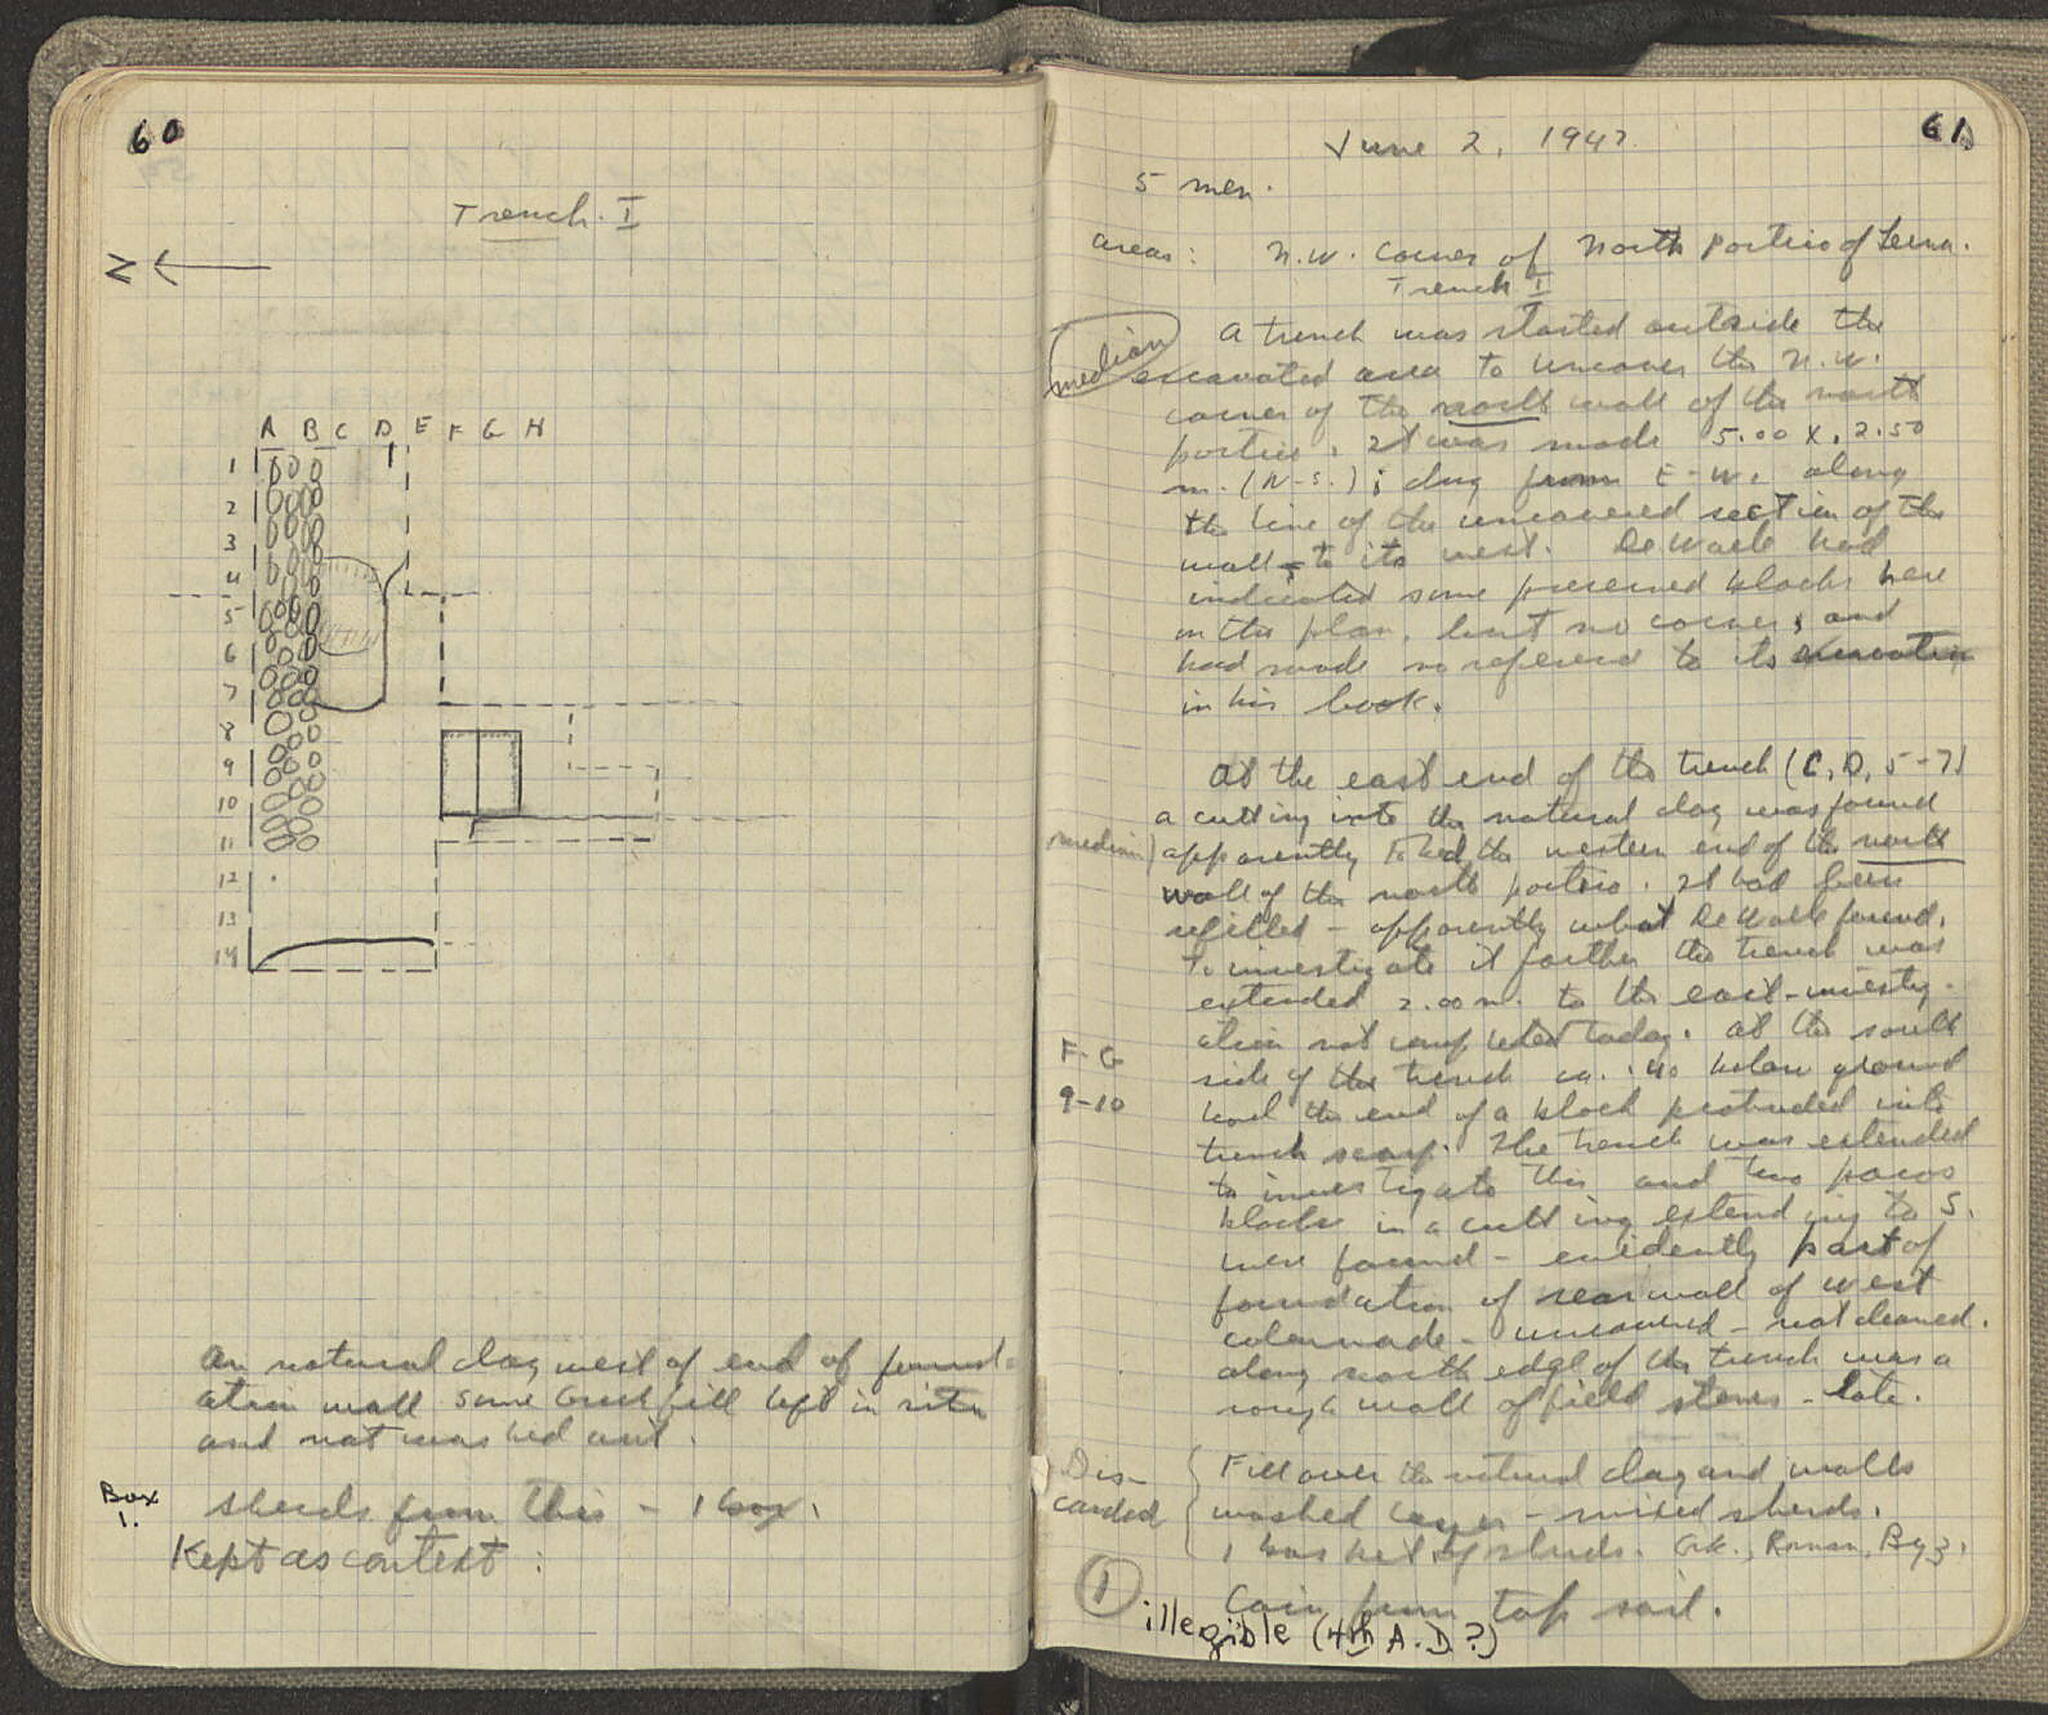 60
Trench. I
N
A B C D E F G H
1
2
3
4
5
6
7
8
9
10
11
12
13
14
on natural clay west of end of found-
ation wall some fill left in situ
and not washed out.
Box
1.
sherds from this - 1 box.
Kept as context :
61
June 2, 1947.
5 men.
areas: N.W. corner of North Portico of Lerna.
Trench I
median
A trench was started outside the
excavated area to uncover the N.W.
corner of the north wall of the north
portico. It was made 5.00 x 2.50
m. (N-S.); dug from E-W. along
the line of the uncovered section of the
wall to its west. De Waele had
indicated some preserved blocks here
on the plan, but no corner, and
had made no reference to its excavation
in his book.
At the east end of the trench (C, D, 5-7)
a cutting into the natural clay was found
median) apparently the western end of the north
wall of the north portico. It had been
refilled - apparently what De Waele found.
To investigate it further the trench was
extended 2.00 m. to the east - investig-
ation not completed today. At the south
F-G
9-10
side of the trench ca. .40 below ground
level the end of a block protruded into
trench scarp. The trench was extended
to investigate this and two poros
blocks in a cutting extending to S.
were found - evidently part of
foundation of rear wall of west
colonnade - uncovered - not cleaned.
along north edge of the trench was a
rough wall of field stones - late.
Dis-
carded
Fill over the natural clay and walls
washed layer - mixed sherds.
1 basket of sherds. Gk., Roman, Byz.
1 Coin from top soil.
illegible (4th A.D.?)